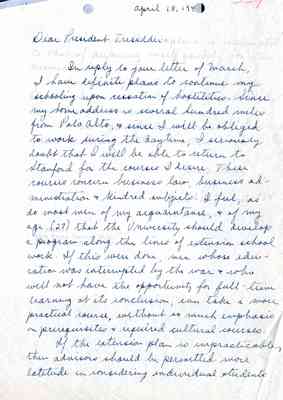 April 18, 194
Dear President Tresidder
In reply to your letter of March,
I have definite plans to continue my
schooling upon cessation of hostilities. Since
my home address is several hundred miles
from Palo Alto, & since I will be obliged
to work during the daytime, I seriously
doubt that I will be able to return to
Stanford for the courses I desire. These
courses concern business law, business ad-
ministration & kindred subjects. I feel, as
do most men of my acquaintance, & of my
age (29) that the University should develop
a program along the lines of extension school
work. If this were done, men whose edu-
cation was interrupted by the war & who
will not have the opportunity for full-time
learning at its conclusion, can take a more
practical course, without so much emphasis
on prerequisites & required cultural courses.
If the extension plan is impracticable,
then advisors should be permitted more
latitude in considering individual students